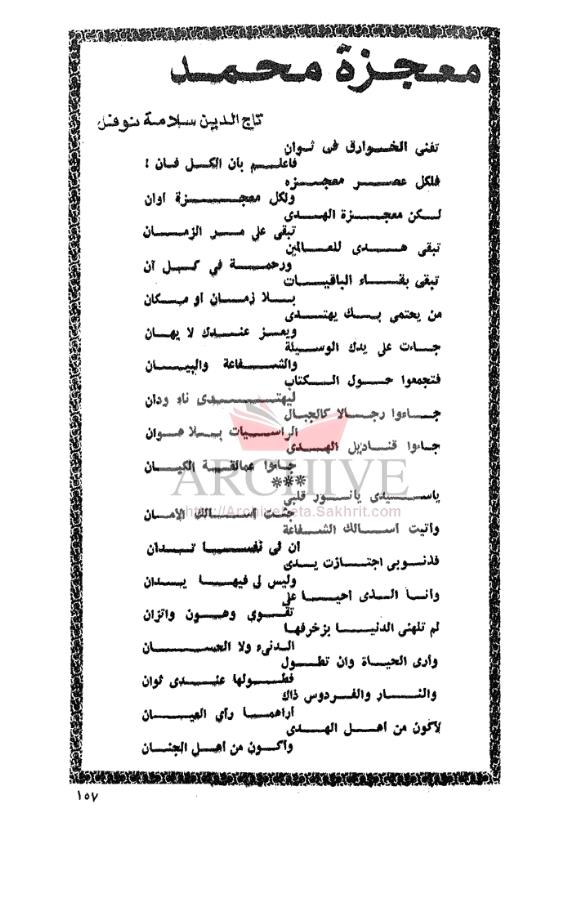 معجزة محمد
تاج الدين سلامة نوفل
تفنى الخوارق في ثوان
فاعلم بان الكل فان !
فلكل عصر معجزه
ولكل معجزة اوان
لكن معجزة الهدى
تبقى علي مر الزمان
تبقى هدى للعالمين
ورحمة في كل آن
تبقى بقاء الباقيات
بلا زمان أو مكان
من يحتمى بك يهتدى
ويعز عندك لا يهان
جاءت على يدك الوسيلة
والشفاعة والبيان
فتجمعوا حول الكتاب
ليهتدى ناء ودان
جاءوا رجالا كالجبال
الراسيات بلا هوان
جاءوا قناديل الهدى
جاءوا عمالقة الكيان
***
ARCHIVE
http://Archivebeta.Sakhrit.com
ياسيدى يانور قلبي
جئت اسالك الامان
واتيت اسالك الشفاعة
ان لى نفسا تدان
فذنوبى اجتازت يدى
وليس لى فيها يدان
وأنا الذى احيا على
تقوى وهون واتزان
لم تلهنى الدنيا بزخرفها
الدنىء ولا الحسان
وأرى الحياة وان تطول
فطولها عندى ثوان
والنار والفردوس ذاك
أراهما رأي العيان
لاكون من أهل الهدى
وأكون من أهل الجنان
١٥٧